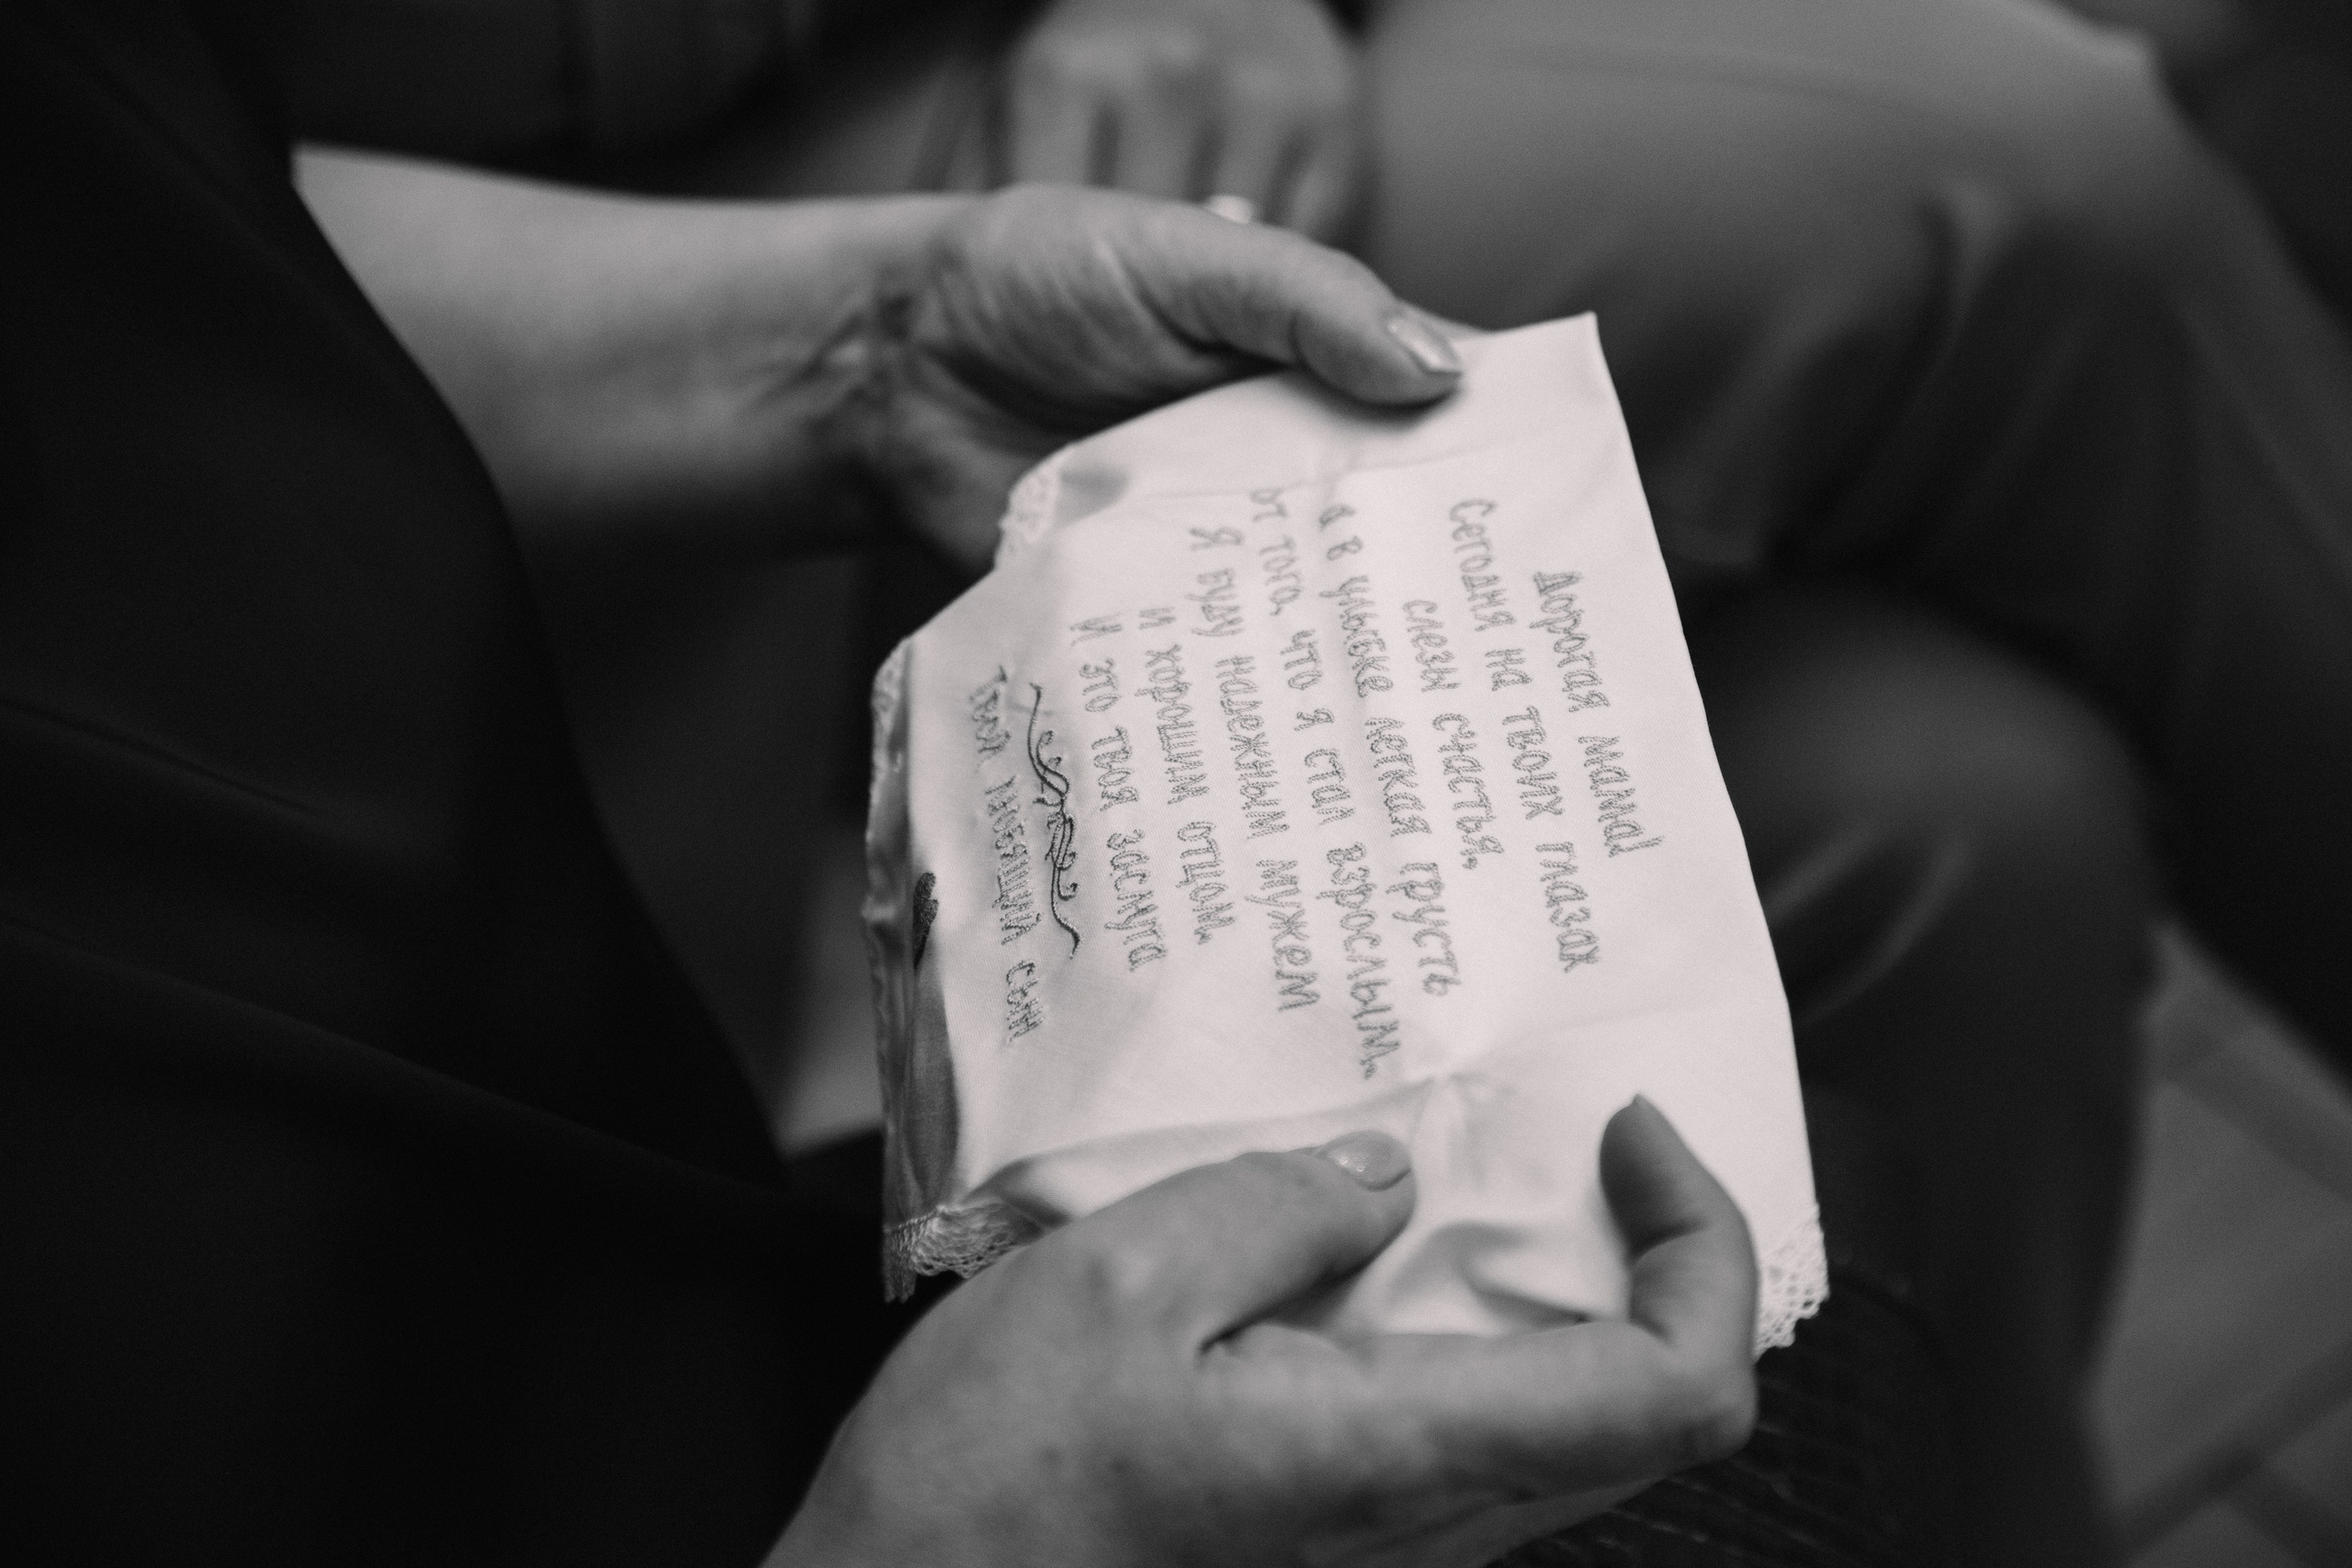 Дорогая мама!
Сегодня на твоих глазах
слезы счастья,
а в улыбке легкая грусть
от того, что я стал взрослым.
Я буду надежным мужем
и хорошим отцом,
И это твоя заслуга
Твой любящий сын